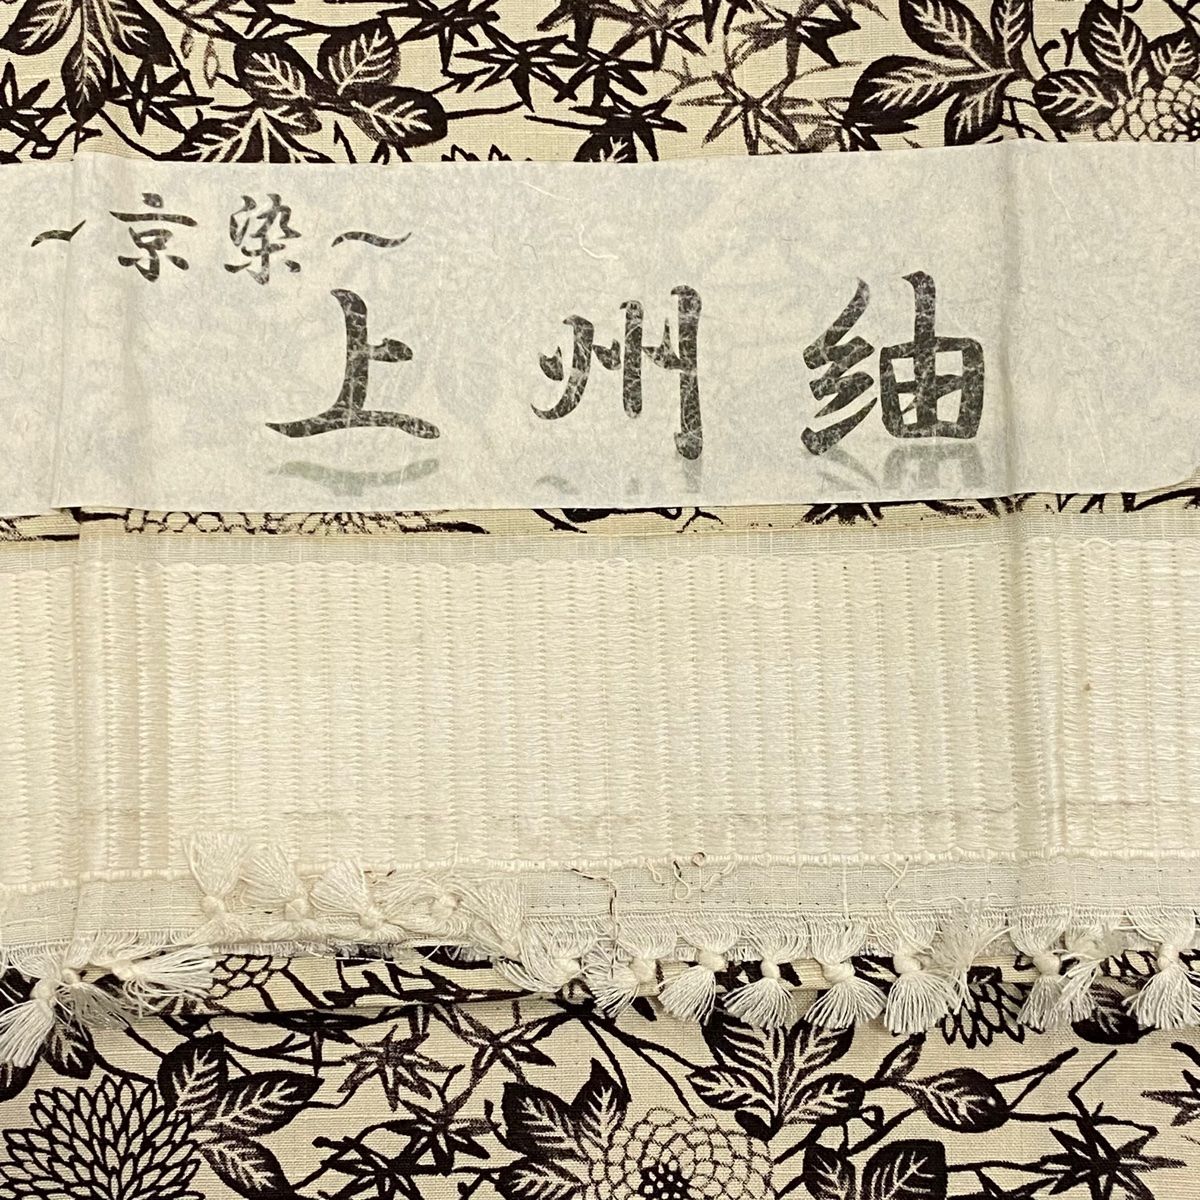 ～京染～
上州紬